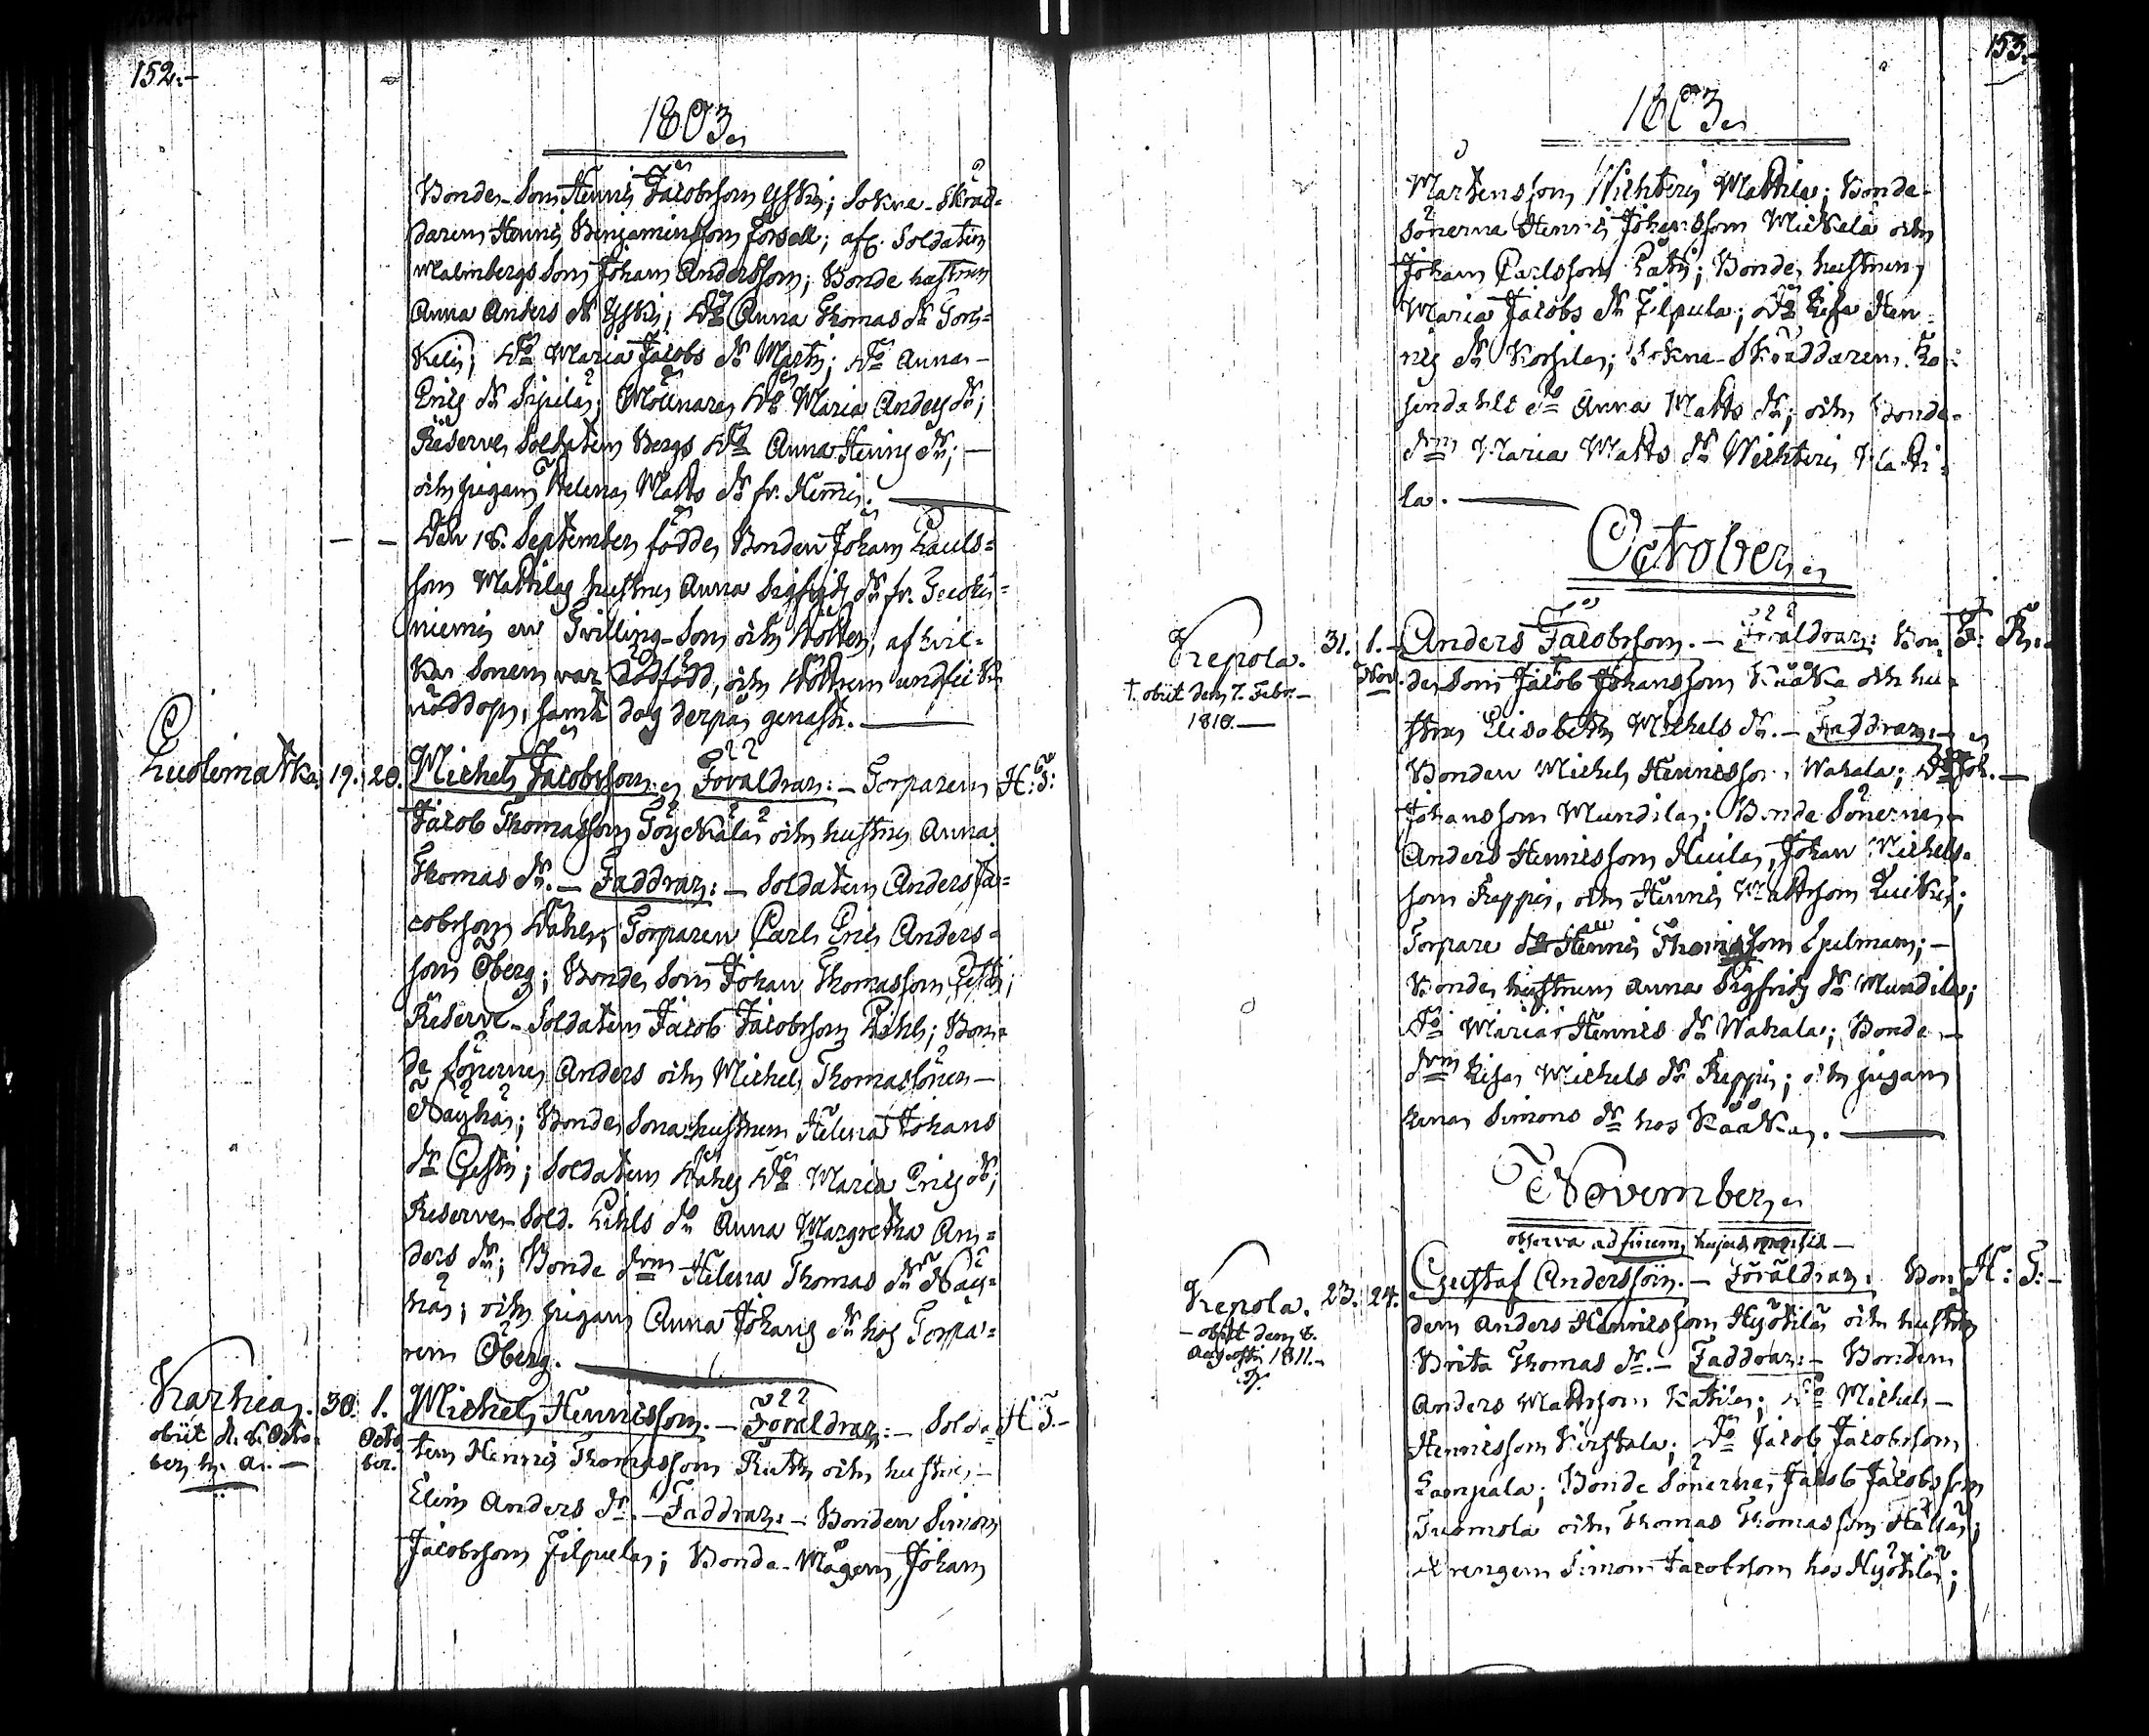 152.-
1803.
Bonde-Son Henric Jacobsson Yski; Sokne-Skräd=
daren Henric Benjaminsson Forsell; afl. Soldaten
Malmbergs Son Johan Andersson; Bonde hustrun
Anna Anders dr Yski; Do Anna Thomas dr
Do Maria Jacobs dr Martti; Do Anna
Erics dr Sipilä; Mölnares Do Maria Anders dr;
Reserve Soldaten Bergs Do Anna Henrics dr; —
och pigan Helena Matts dr fr.
— — Den 18. September födde Bonden Johan Pauls=
son Mattilas hustru Anna Sigfrids dr fr.
niemi en Tvilling-Son och Dotter, af hvil=
ka Sonen var dödfödd, och Dottren undfick
nöddop, samt dog derpå genast. —
Luolamatka. 19. 20. Michel Jacobsson. Föräldrar: — Torparen H: T:
Jacob Thomasson Töyckälä och hustru Anna
Thomas dr. — Faddrar: — Soldaten Anders Ja=
cobsson Torparen Carl Eric Anders=
son Öberg; Bonde Son Johan Thomasson
Reserve-Soldaten Jacob Jacobsson Bon=
de Sönerne Anders och Michel Thomassöner —
Näyhä; Bonde Sona hustrun Helena Johans
dr Soldaten Do Maria Erics dr;
Reserve-Sold. do Anna Margretha An=
ders dr; Bonde drn Helena Thomas dr Näy=
hä; och pigan Anna Johans dr hos Torpa=
ren Öberg. —
Karhia. 30. 1. Michel Henricsson. — Föräldrar: — Solda= H: T:-
obiit d. 8. Octo= Octo
ber h. a. — ber. ten Henric Thomasson och hustru —
Elin Anders dr. — Faddrar: — Bonden Simon
Jacobsson Filpula; Bonde-Mågen Johan
153.-
1803.
Mårtensson Wichteri Mattila; Bonde-
Sönerna Henric Johansson Mickelä och
Johan Carlsson Bonde hustrun
Maria Jacobs dr Filpula; Do Lisa Hen=
rics dr Korsila; Sokne-Skräddaren
do Anna Matts dr; och Bonde-
drn Maria Matts dr Wichteri Matti=
la. —
October.
Kepola. 31. 1. Anders Jacobsson. — Föräldrar: Bon= F: R:
† obiit den 7. Febr. — Nov. de Son Jacob Johansson Kååka och hu=
1810. — stru Elisabeth Michels dr. — Faddrar: —
Bonden Michel Henricsson Wahala; Do Joh. —
Johansson Mundila; Bonde Sönerne —
Anders Henricsson Johan Michels-
son Reppi, och Henric Mattsson
Torpare Do Henric Thomasson Spelman; —
Bonde hustrun Anna Sigfrids dr Mundila;
Do Maria Henrics dr Wahala; Bonde —
drn Lisa Michels dr Reppi; och pigan
Lena Simons dr hos Kååka. —
November.
observa ad finem hujus mensis —
Kepola. 23. 24. Gustaf Andersson. — Föräldrar: Bon= H: T: —
— obiit den 8. den Anders Henricsson Hyötilä och hustru
Augusti 1811. — Brita Thomas dr. — Faddrar: — Bonden
Anders Mattsson Katila; Do Michel —
Henricsson Kirstala; Do Jacob Jacobsson
Lampala; Bonde Sönerne Jacob Jacobsson
Tuomola och Thomas Thomasson
drengen Simon Jacobsson hos Hyötilä;